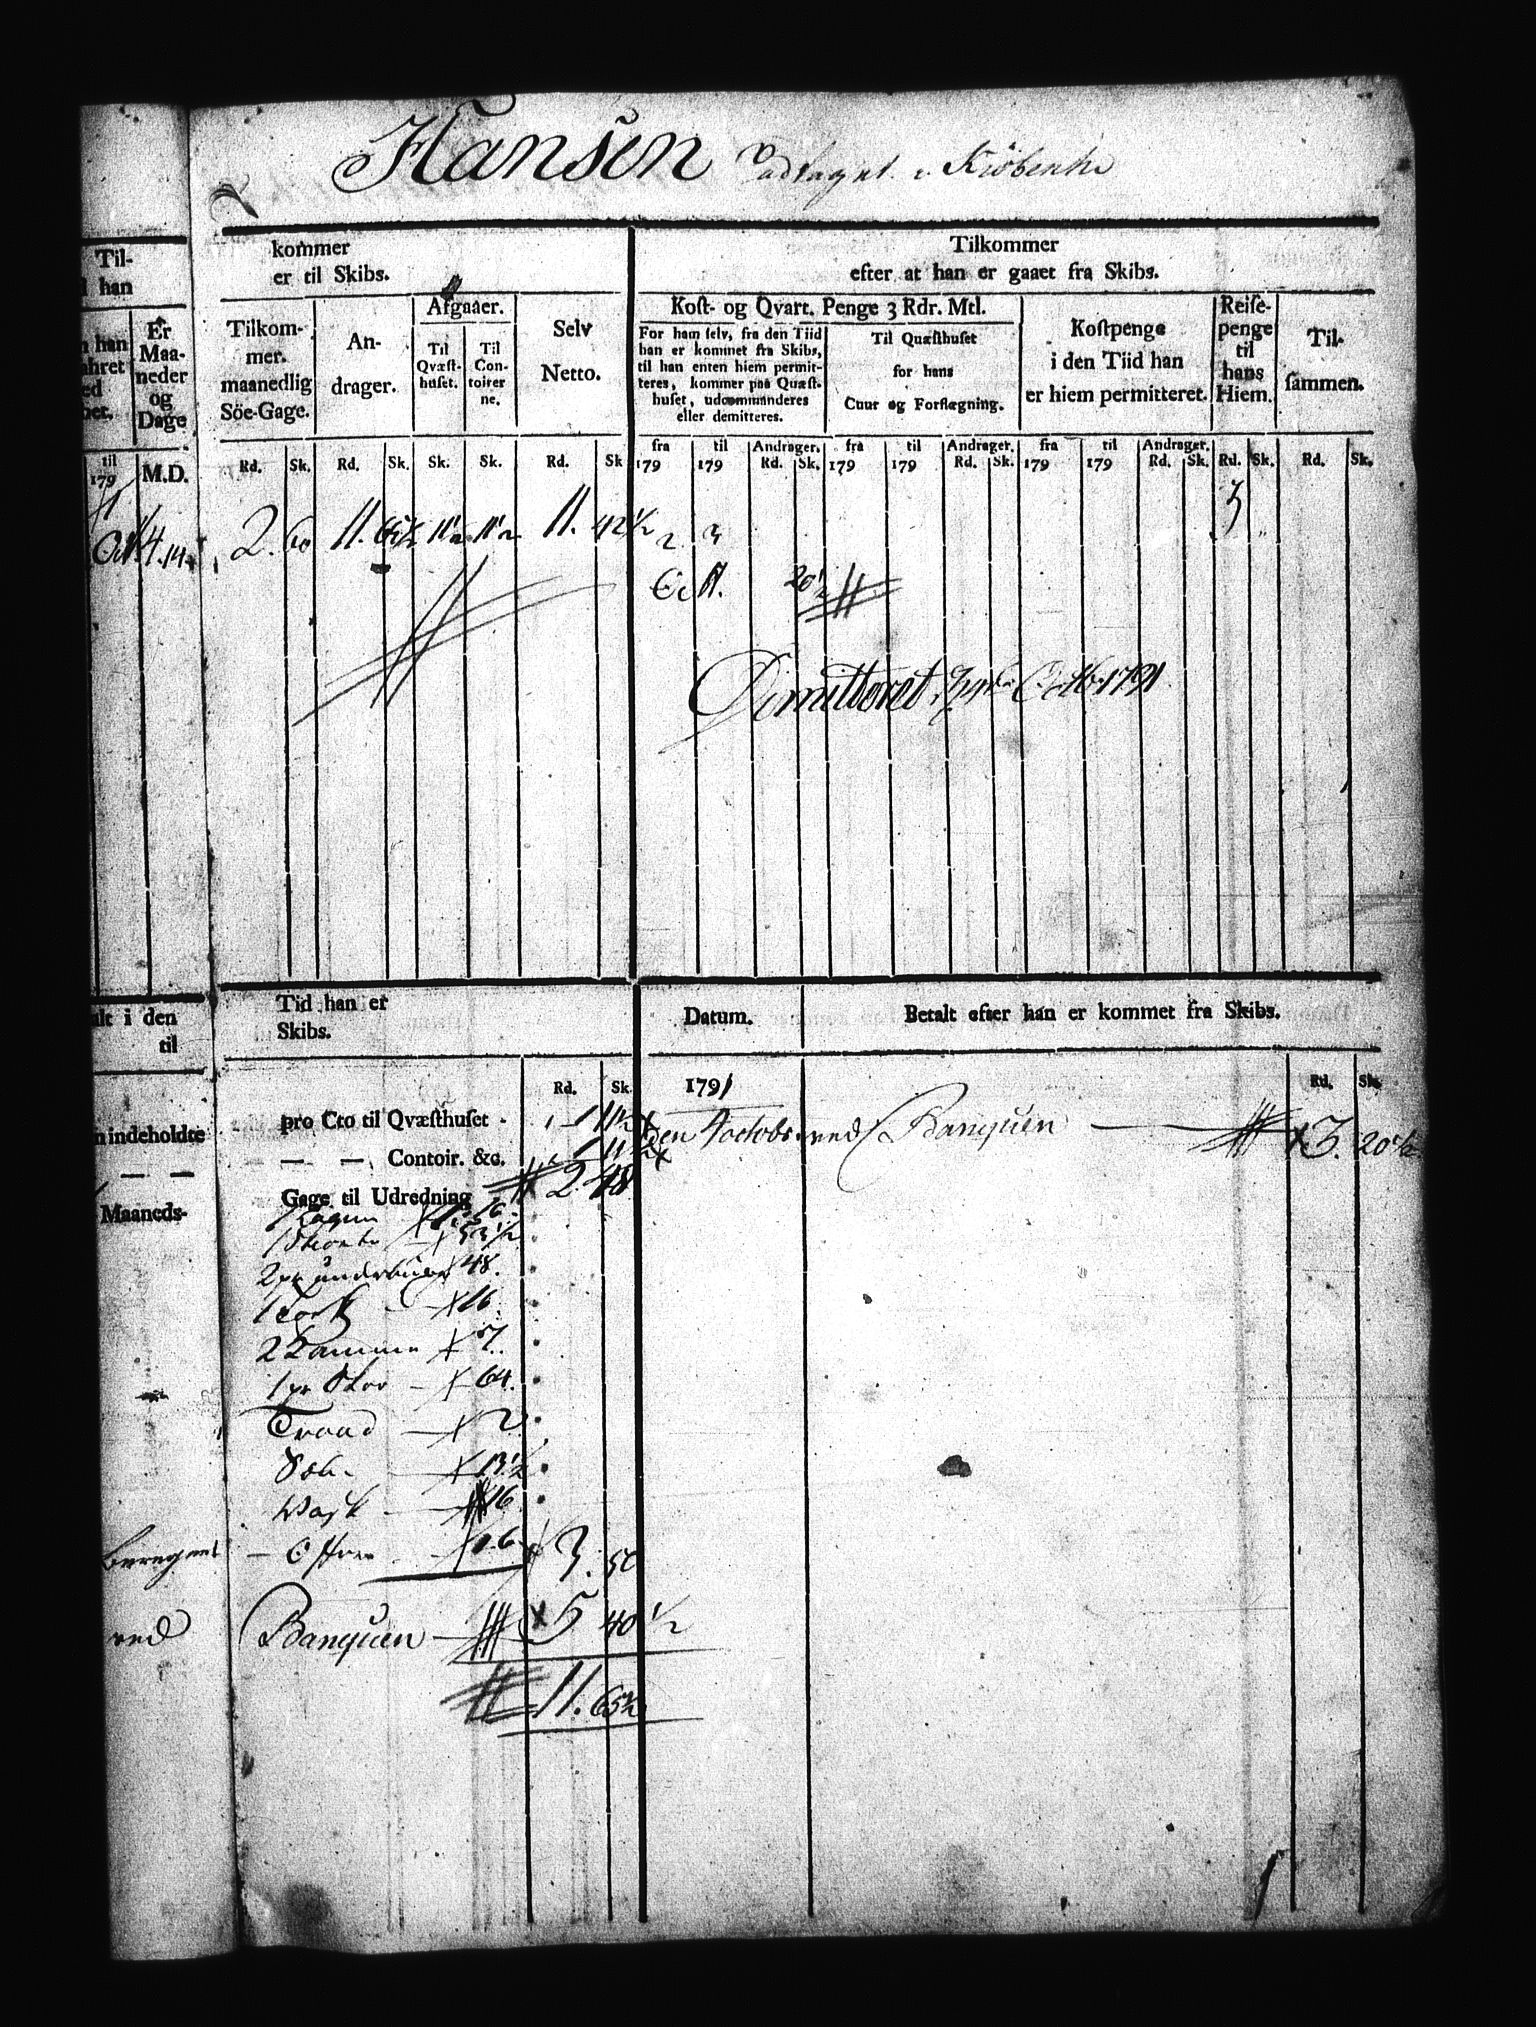 Hansen i Kiöbenh
Til-
han
kommer
er til Skibs.
Tilkommer
efter at han er gaaet fra Skibs.
han
Er
Maa-
neder
og
Dage
Tilkom-
mer.
maanedlig
Söe-Gage.
An-
drager.
Afgaaer.
Til
Qvæst-
huset.
Til
Con-
toirer
ne.
Selv
Netto.
Kost- og Qvart. Penge 3 Rdr. Mtl.
For ham selv, fra den Tiid
han er kommet fra Skibs,
til han enten hiem permit-
teres, kommer paa Quæst-
huset, udcommanderes
eller demitteres.
Til Quæsthuset
for hans
Cuur og Forflægning.
Kostpenge
i den Tiid han
er hiem permitteret.
Reise-
penge
til
hans
Hiem.
Til-
sammen.
fra til Andrager. fra til Andrager. fra til Andrager.
til 179 M.D. Rd. Sk. Rd. Sk. Sk. Sk. Rd. Sk 179 179 Rd. Sk. 179 179 Rd. Sk. 179 179 Rd. Sk. Rd. Sk. Rd. Sk.
4. 14 2. 60 11. 11½ 11½ 11. 42½ 2 3 3
Oct. 20½
Demitteret Octb. 1791
alt i den
til
Tid han er
Skibs.
Datum.
Betalt efter han er kommet fra Skibs.
Rd. Sk. 1791 Rd. Sk.
pro Cto til Qvæsthuset - 1 11½
den 4 octobr. ved Banquen 3. 20½
indeholdte — — Contoir. &c. 1 11½
Gage til Udredning 2. 48
Maaneds-
1 53½
2 pr underbuxer 48.
1 16.
2 Kamme 7.
1 pr Skoe 64.
Traad 2.
Sæbe 13½
Vask 16
beregnet 3. 50
ved Banquen 5 40½
11. 65½